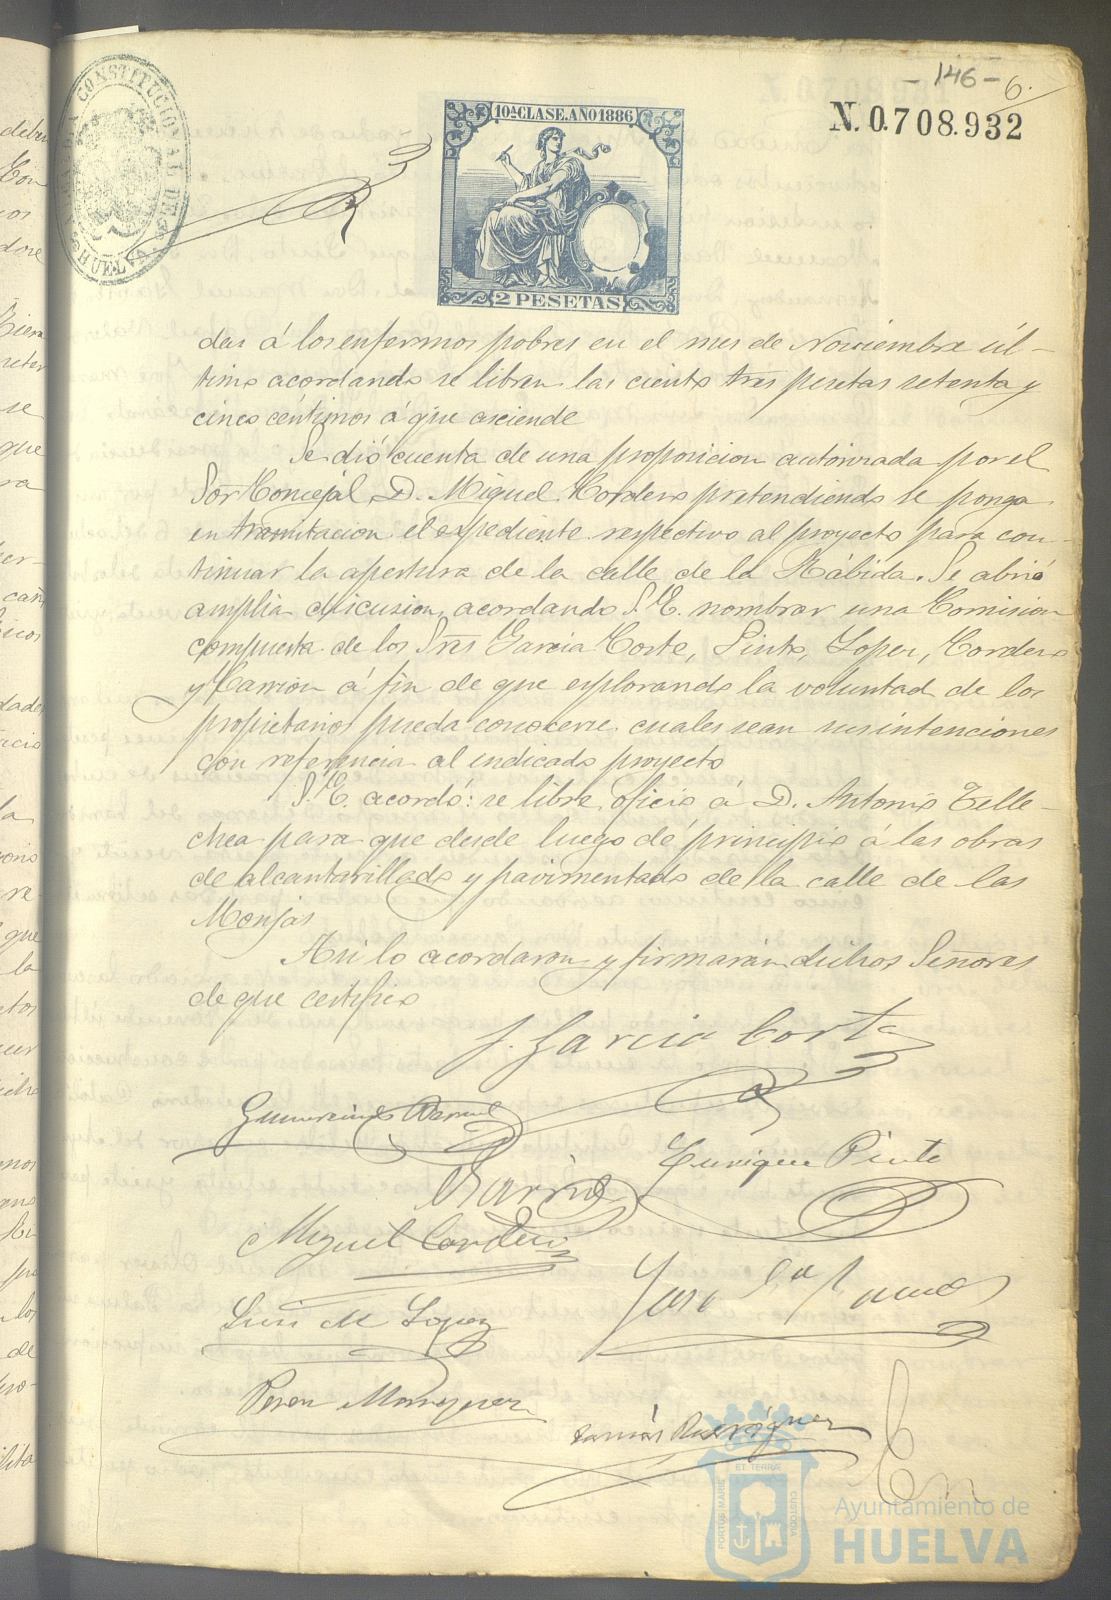 - 146 - 6.
ALCALDIA CONSTITUCIONAL DE HUELVA
10ª CLASE. AÑO 1886
N. 0.708.932
2 PESETAS
das á los enfermos pobres en el mes de Noviembre úl-
timo acordando se libren las ciento tres pesetas setenta y
cinco céntimos á que asciende
Se dió cuenta de una proposicion autorizada por el
Sor Concejal D. Miguel Cordero pretendiendo se ponga
en tramitacion el espediente respectivo al proyecto para con-
tinuar la apertura de la calle de la Rábida. Se abrió
amplia discusion, acordando S. E. nombrar una Comision
compuesta de los Sres Garcia Corte, Pinto, Lopez, Cordero
y Carrion á fin de que esplorando la voluntad de los
propietarios pueda conocerse cuales sean sus intenciones
con referencia al indicado proyecto
S. E. acordó: se libre oficio á D. Antonio Telle-
chea para que desde luego dé principio á las obras
de alcantarillado y pavimentado de la calle de las
Monjas
Asi lo acordaron y firmarán dichos Señores
de que certifico
J. Garcia Corte
Enrique Pinto
Miguel Cordero
José
Luis M Lopez
Marquez
Tomás Rodriguez
PORTUS MARIS ET TERRÆ CUSTODIA
Ayuntamiento de
HUELVA